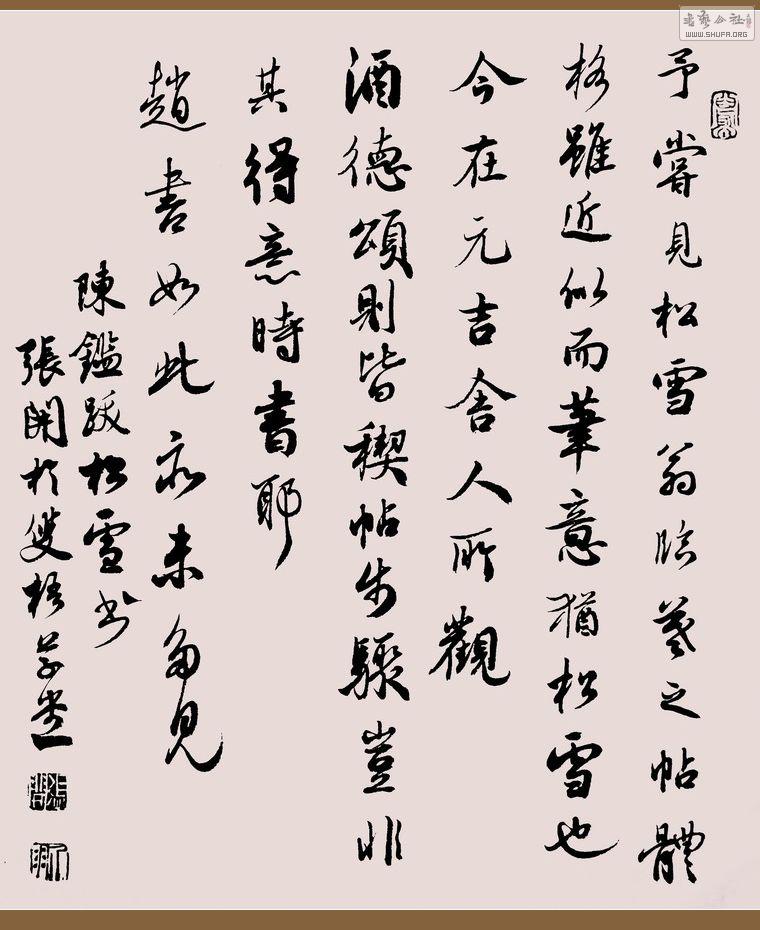 予嘗見松雪翁臨羲之帖體
格雖近似而筆意猶松雪也
今在元吉舍人所觀
酒德頌則皆稧帖步驟豈非
其得意時書耶
趙書如此亦未多見
陳鑑跋松雪書
張開於雙梧草堂
書藝公社
WWW.SHUFA.ORG